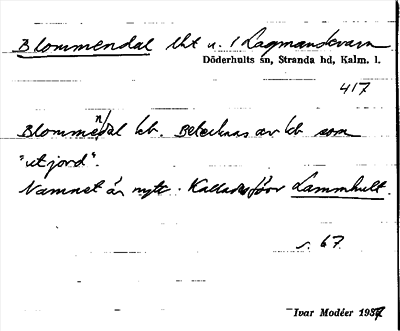 Blommendal lht u. / Lagmanskvarn
Döderhults sn, Stranda hd, Kalm. l.
417
Blommendal lb. Betecknas av lb som
"utjord".
Namnet är nytt. Kallades förr Lammhult.
s. 67.
Ivar Modéer 1937